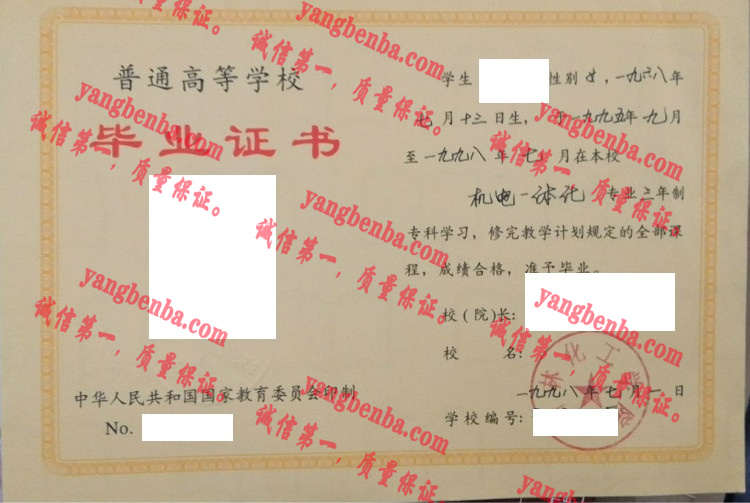 普通高等学校
毕业证书
中华人民共和国国家教育委员会印制
No.
学生 性别女，一九六八年
七月十三日生， 于一九九五年九月
至一九九八年七月在本校
机电一体化专业三年制
专科学习，修完教学计划规定的全部课
程，成绩合格，准予毕业。
校（院）长：
校 名：
化工
一九九八年七月一日
学校编号：
yangbenba.com
诚信第一，质量保证。
yangbenba.com
诚信第一，质量保证。
yangbenba.com
诚信第一，质量保证。
yangbenba.com
诚信第一，质量保证。
yangbenba.com
诚信第一，质量保证。
yangbenba.com
诚信第一，质量保证。
yangbenba.com
诚信第一，质量保证。
yangbenba.com
诚信第一，质量保证。
yangbenba.com
诚信第一，质量保证。